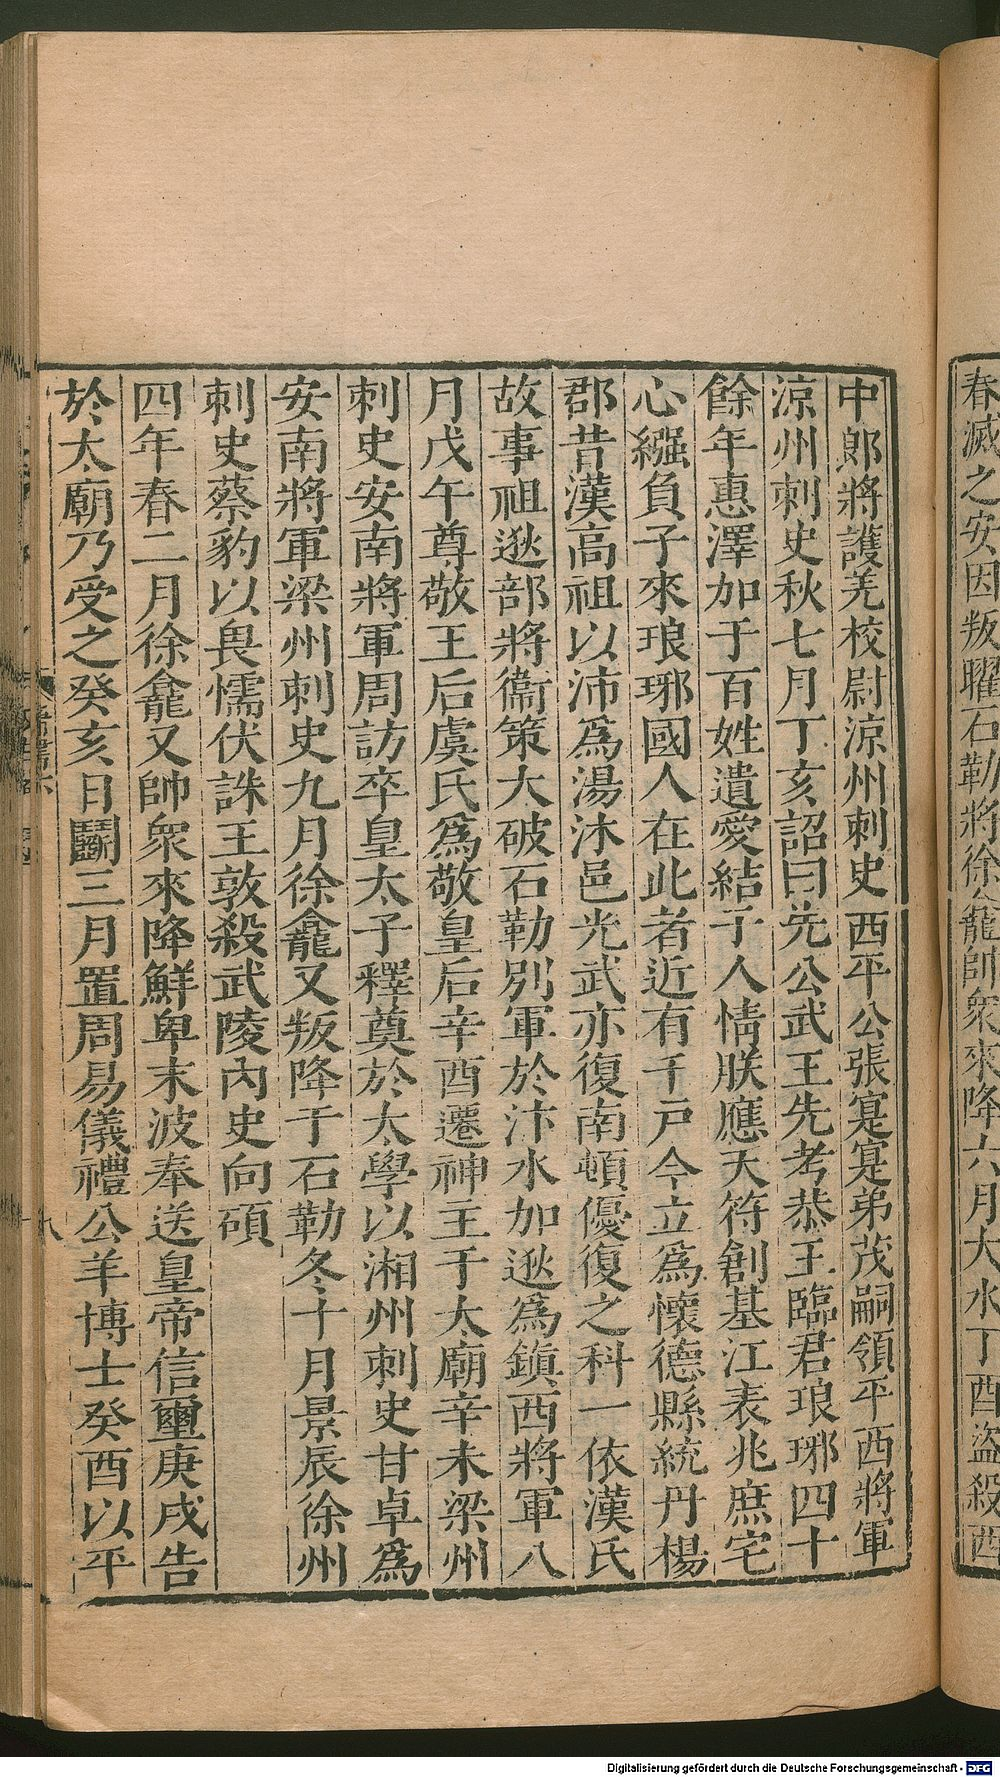 春滅之安因叛曜石勒將徐龕帥眾來降六月大水丁酉盜殺西
中郎將護羌校尉涼州刺史西平公張寔寔弟茂嗣領平西將軍
涼州刺史秋七月丁亥詔曰先公武王先考恭王臨君琅邪四十
餘年惠澤加于百姓遺愛結于人情朕應天符創基江表兆庶宅
心繈負子來琅邪國人在此者近有千戶今立爲懷德縣統丹楊
郡昔漢高祖以沛爲湯沐邑光武亦復南頓優復之科一依漢氏
故事祖逖部將衞策大破石勒別軍於汴水加逖爲鎮西將軍八
月戊午尊敬王后虞氏爲敬皇后辛酉遷神主于太廟辛未梁州
刺史安南將軍周訪卒皇太子釋奠於太學以湘州刺史甘卓爲
安南將軍梁州刺史九月徐龕又叛降于石勒冬十月景辰徐州
刺史蔡豹以畏懦伏誅王敦殺武陵內史向碩
四年春二月徐龕又帥衆來降鮮卑末波奉送皇帝信璽庚戌告
於太廟乃受之癸亥日鬭三月置周易儀禮公羊博士癸酉以平
八
Digitalisierung gefördert durch die Deutsche Forschungsgemeinschaft - DFG